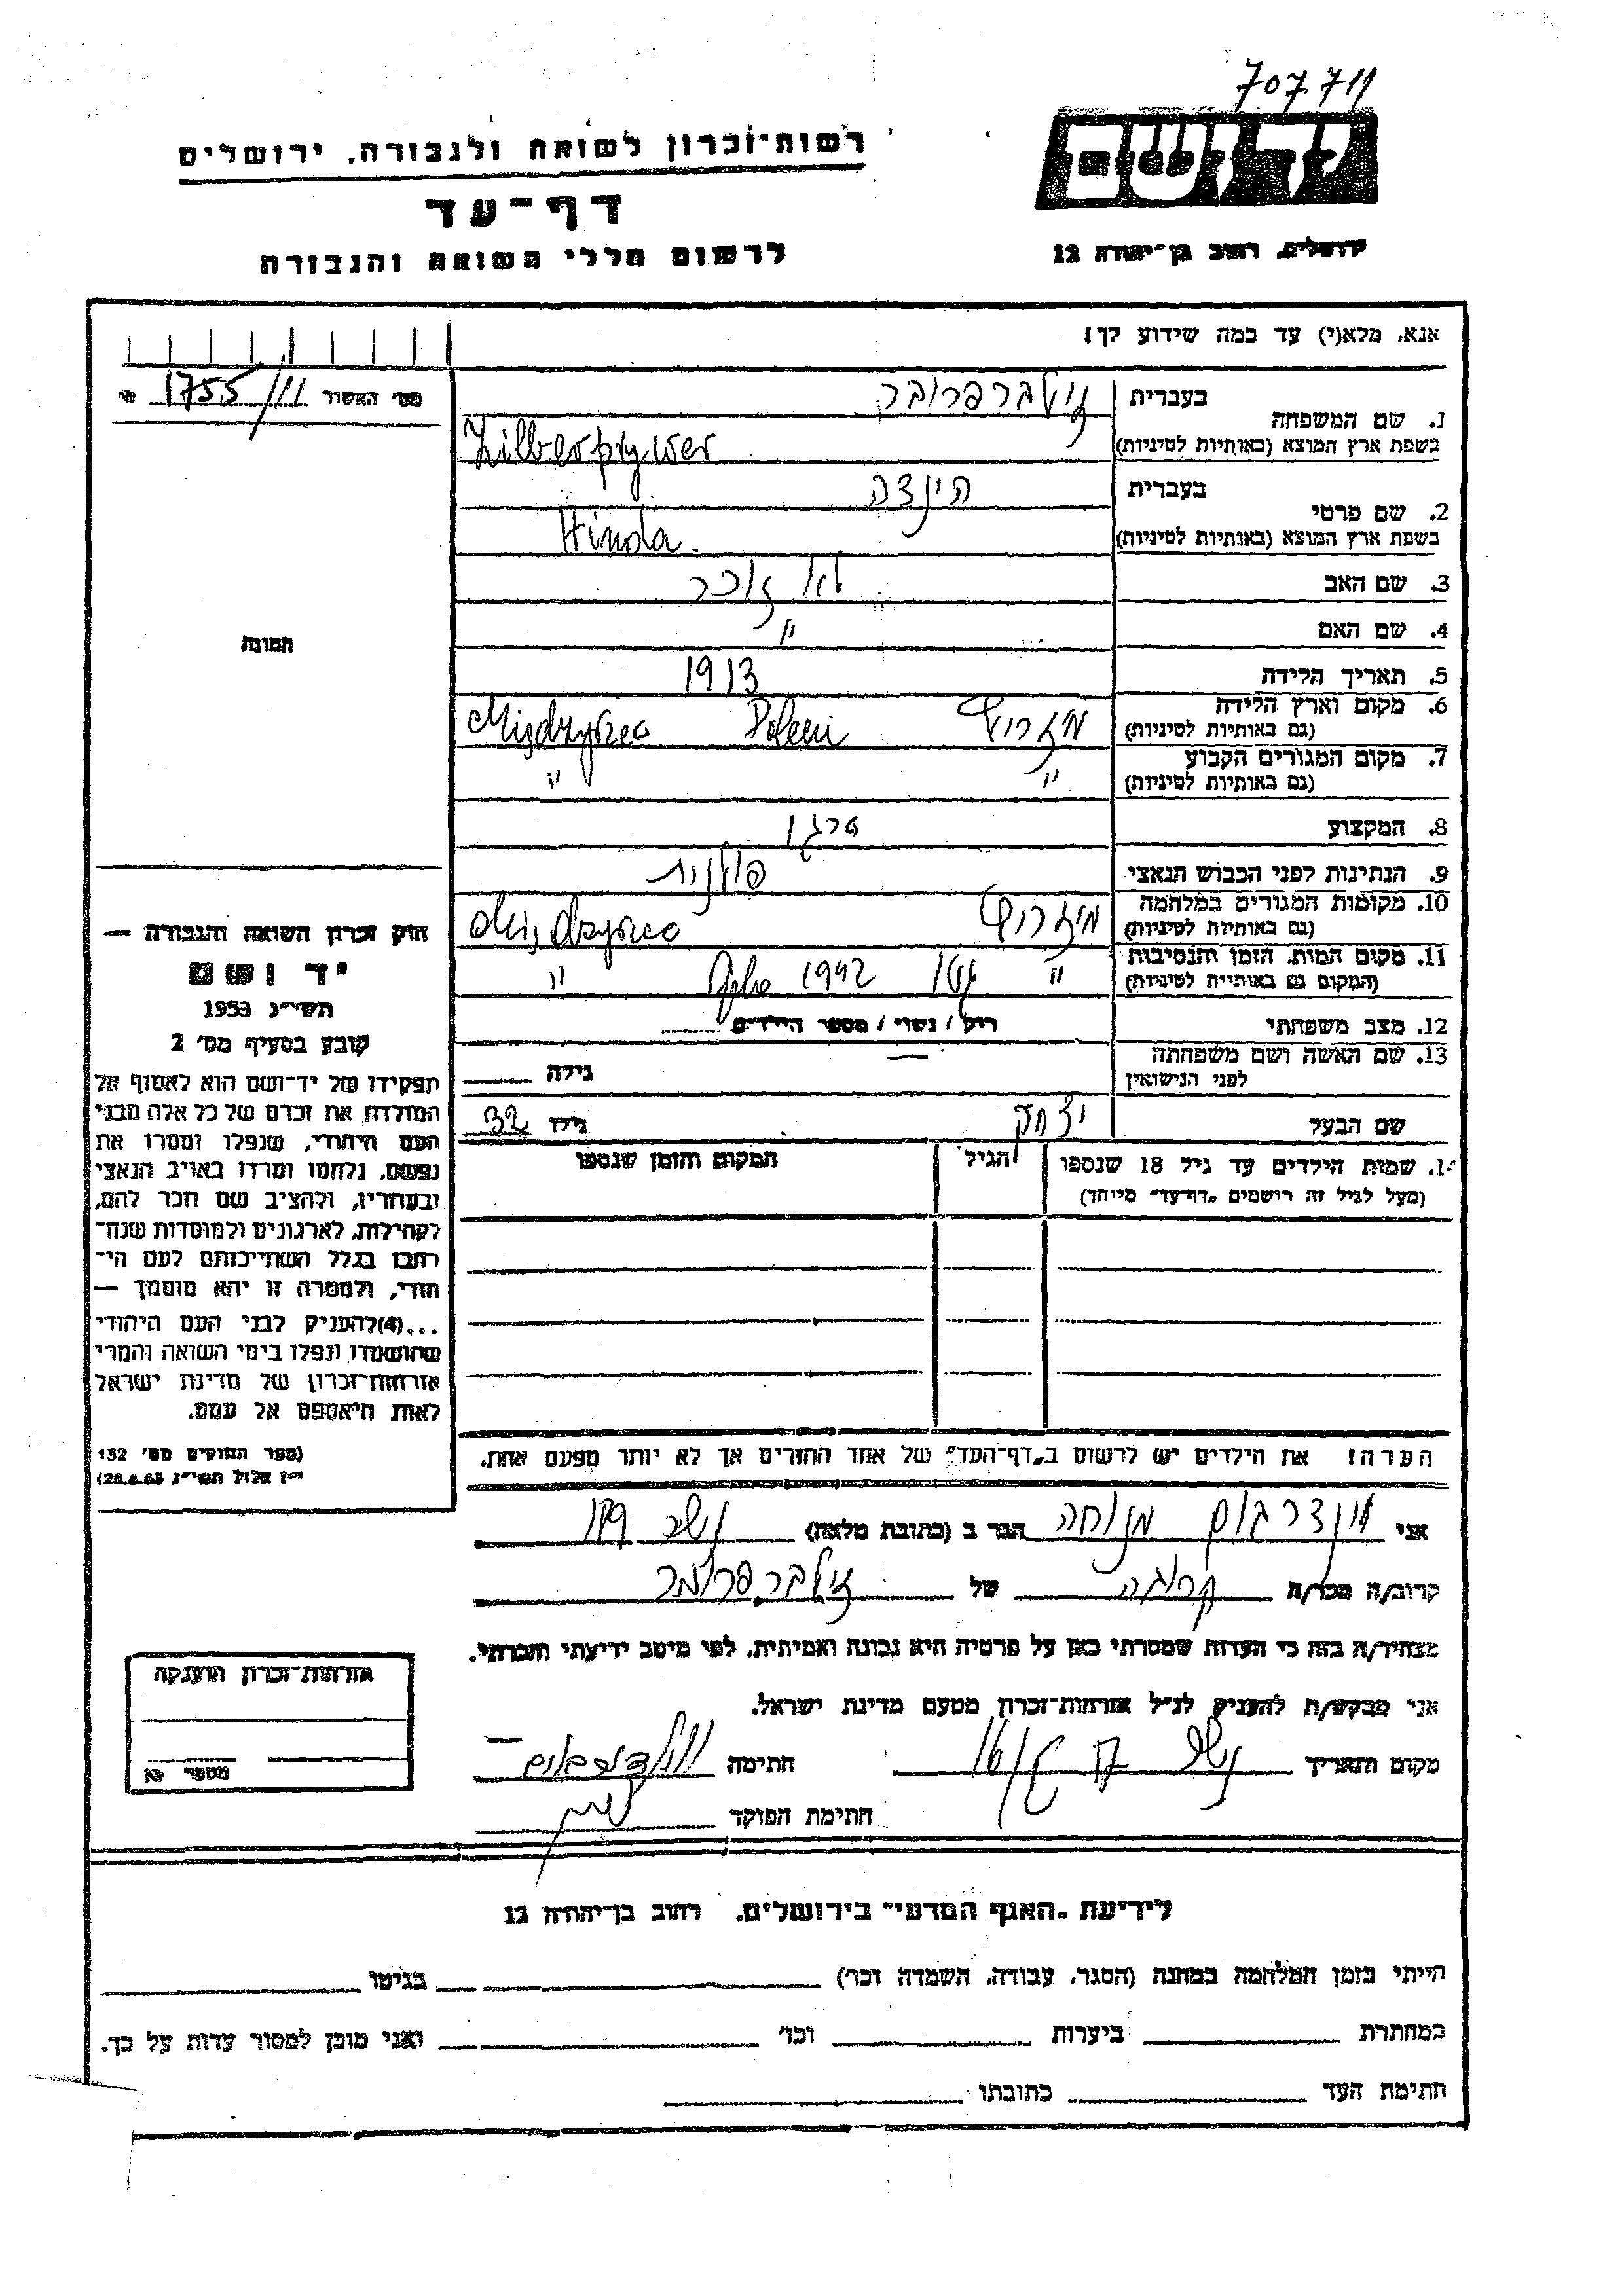 707 711
יד ושם
רשות-זכרון לשואה ולגבורה. ירושלים
דף-עד
לרשום חללי השואה והגבורה
ירושלים. רחוב בן-יהודה 12
אנא, מלא(י) עד כמה שידוע לך!
מס' האשור 1755/11 №
1. שם המשפחה
בעברית
זילברפרובר
בשפת ארץ המוצא (באותיות לטיניות)
Zilberprywer
2. שם פרטי
בעברית
הינדה
בשפת ארץ המוצא (באותיות לטיניות)
Hinda
3. שם האב לא זוכר
4. שם האם "
5. תאריך הלידה 1913
6. מקום וארץ הלידה
(גם באותיות לטיניות)
Polen
7. מקום המגורים הקבוע " "
(גם באותיות לטיניות)
8. המקצוע
9. הנתינות לפני הכבוש הנאצי פולנית
10. מקומות המגורים במלחמה
(גם באותיות לטיניות)
11. מקום המות. הזמן והנסיבות " 1942 "
(המקום גם באותיות לטיניות)
12. מצב משפחתי רוק / נשוי / מספר הילדים
13. שם האשה ושם משפחתה
לפני הנישואין
גילה
שם הבעל יצחק גילו 32
14. שמות הילדים עד גיל 18 שנספו הגיל המקום והזמן שנספו
(מעל לגיל זה רישמים "דף-עד" מיוחד)
הערה! את הילדים יש לרשום ב"דף-העד" של אחד ההורים אך לא יותר מפעם אחת.
תמונה
חוק זכרון השואה והגבורה —
יד ושם
תשי"ג 1953
קובע בסעיף מס' 2
תפקידו של יד-ושם הוא לאסוף אל
המולדת את זכרם של כל אלה מבני
העם היהודי, שנפלו ומסרו את
נפשם, נלחמו ומרדו באויב הנאצי
ובעוזריו, ולהציב שם וזכר להם,
לקהילות, לארגונים ולמוסדות שנח-
רבו בגלל השתייכותם לעם הי-
הודי, ולמטרה זו יהא מוסמך —
...(4)להעניק לבני העם היהודי
שהושמדו ונפלו בימי השואה והמרי
אזרחות-זכרון של מדינת ישראל
לאות היאספם אל עמם.
(ספר החוקים מס' 132
י"ז אלול תשי"ג 28.8.53)
אני מנוחה הגר ב (כתובת מלאה) נשר
קרוב/ה מכר/ה קרובה של זילברפרובר
מצהיר/ה בזה כי העדות שמסרתי כאן על פרטיה היא נכונה ואמיתית, לפי מיטב ידיעתי והכרתי.
אני מבקש/ת להעניק לנ"ל אזרחות-זכרון מטעם מדינת ישראל.
מקום ותאריך נשר חתימה
חתימת הפוקד
אזרחות-זכרון הוענקה
מספר №
לידיעת "האגף המדעי" בירושלים. רחוב בן-יהודה 12
הייתי בזמן המלחמה במחנה (הסגר, עבודה, השמדה וכו') בגיטו
במחתרת ביערות וכו' ואני מוכן למסור עדות על כך.
חתימת העד כתובתו